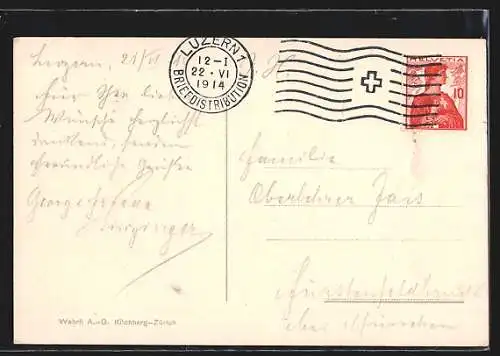 Luzern, 21/VI
LUZERN 1
12-I
22·VI
1914
BRIEFDISTRIBUTION
HELVETIA
10
für Ihre lieben
Wünsche herzlichst
dankend, senden
freundliche Grüße
Familie
Oberlehrer
Fürstenfeldbruck
bei München
Wehrli A.-G. Kilchberg-Zürich